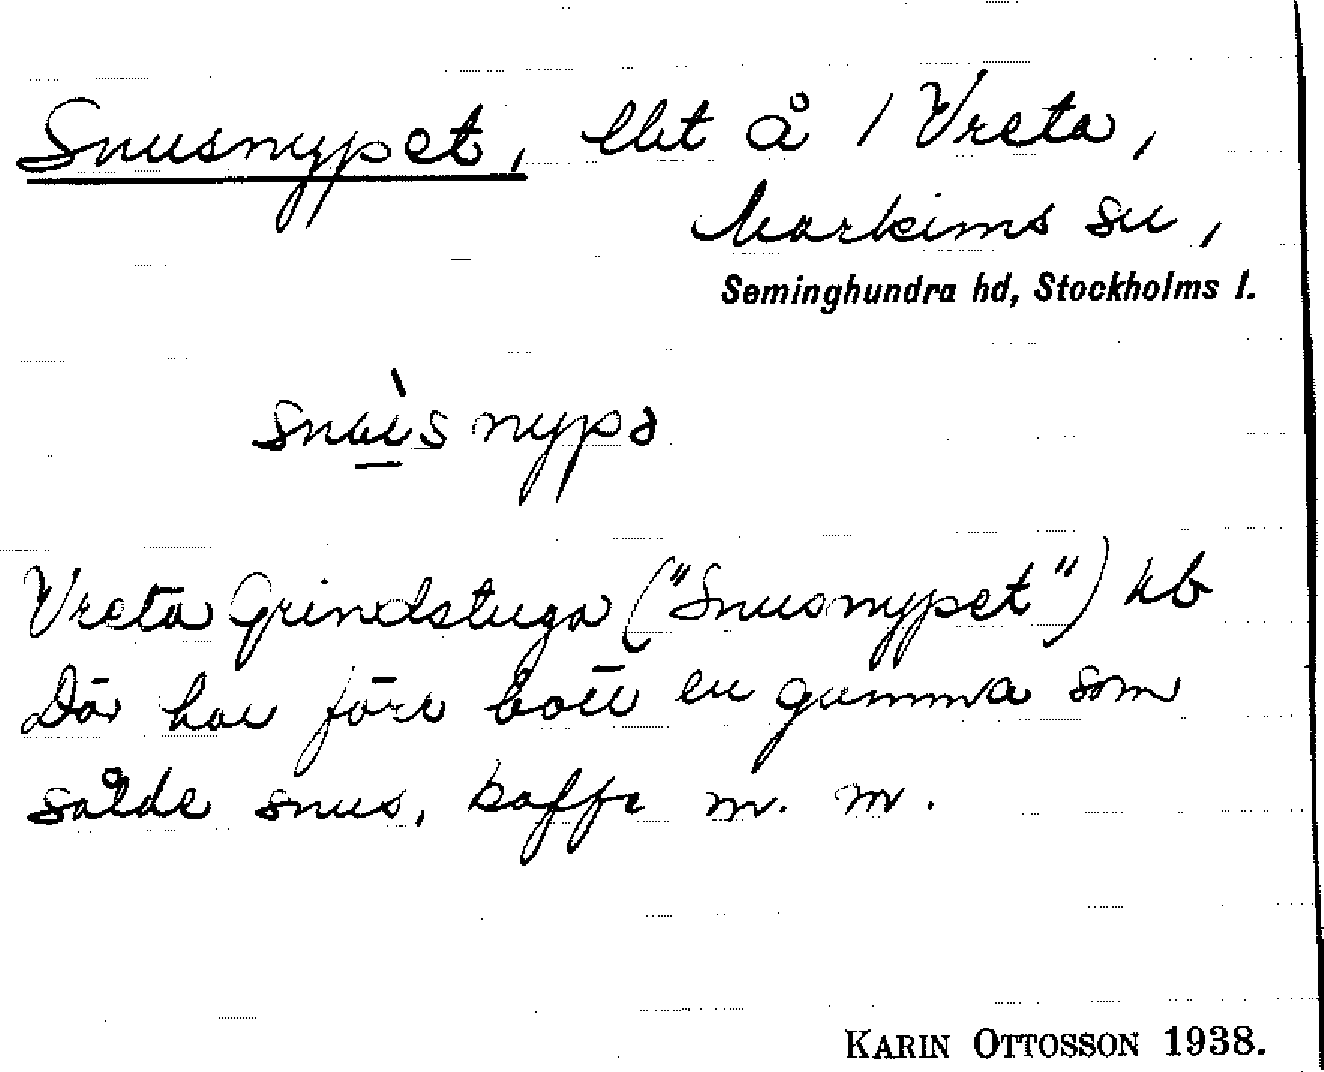 Snusnypet, lht å 1 Vreta,
Markims sn,
Seminghundra hd, Stockholms l.
snù̲snypə
Vreta Grindstuga ("Snusnypet") kb
Där har förr bott en gumma som
sålde snus, kaffe m. m.
KARIN OTTOSSON 1938.